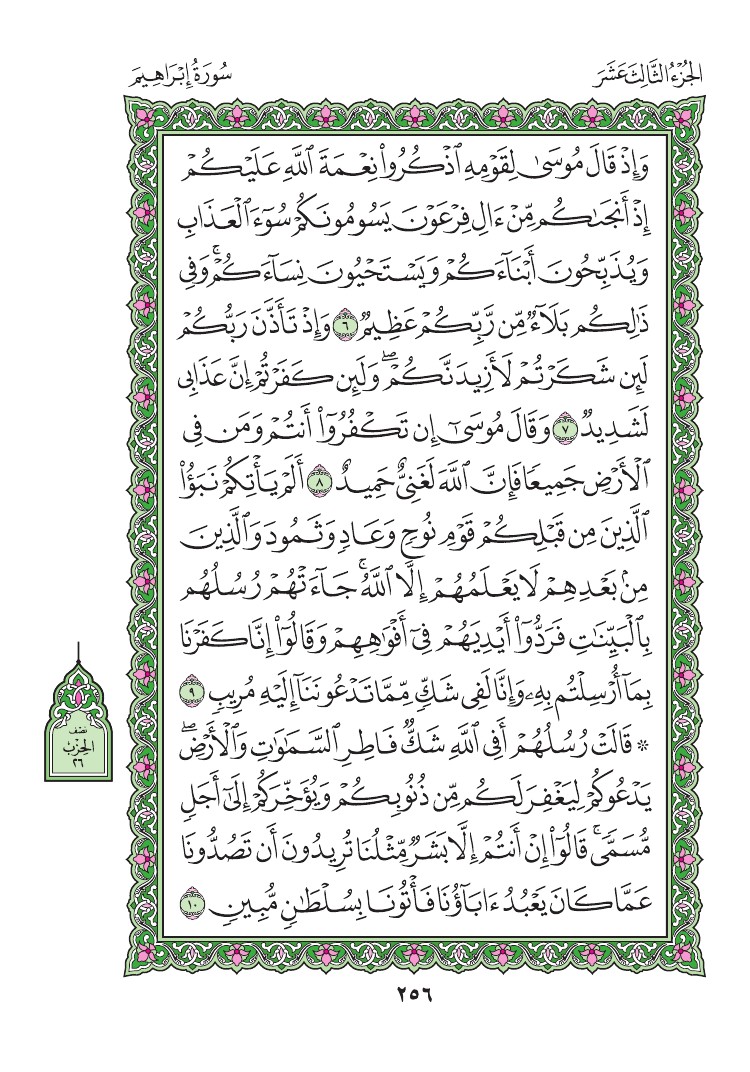 الجزء الثالث عشر
سورة إبراهيم
وَإِذْ قَالَ مُوسَىٰ لِقَوْمِهِ ٱذْكُرُوا۟ نِعْمَةَ ٱللَّهِ عَلَيْكُمْ
إِذْ أَنجَىٰكُم مِّنْ ءَالِ فِرْعَوْنَ يَسُومُونَكُمْ سُوٓءَ ٱلْعَذَابِ
وَيُذَبِّحُونَ أَبْنَآءَكُمْ وَيَسْتَحْيُونَ نِسَآءَكُمْ ۚ وَفِى
ذَٰلِكُم بَلَآءٌ مِّن رَّبِّكُمْ عَظِيمٌ ٦ وَإِذْ تَأَذَّنَ رَبُّكُمْ
لَئِن شَكَرْتُمْ لَأَزِيدَنَّكُمْ ۖ وَلَئِن كَفَرْتُمْ إِنَّ عَذَابِى
لَشَدِيدٌ ٧ وَقَالَ مُوسَىٰٓ إِن تَكْفُرُوٓا۟ أَنتُمْ وَمَن فِى
ٱلْأَرْضِ جَمِيعًا فَإِنَّ ٱللَّهَ لَغَنِىٌّ حَمِيدٌ ٨ أَلَمْ يَأْتِكُمْ نَبَؤُا۟
ٱلَّذِينَ مِن قَبْلِكُمْ قَوْمِ نُوحٍ وَعَادٍ وَثَمُودَ وَٱلَّذِينَ
مِنۢ بَعْدِهِمْ لَا يَعْلَمُهُمْ إِلَّا ٱللَّهُ ۚ جَآءَتْهُمْ رُسُلُهُم
بِٱلْبَيِّنَٰتِ فَرَدُّوٓا۟ أَيْدِيَهُمْ فِىٓ أَفْوَٰهِهِمْ وَقَالُوٓا۟ إِنَّا كَفَرْنَا
بِمَآ أُرْسِلْتُم بِهِۦ وَإِنَّا لَفِى شَكٍّ مِّمَّا تَدْعُونَنَآ إِلَيْهِ مُرِيبٍ ٩
۞ قَالَتْ رُسُلُهُمْ أَفِى ٱللَّهِ شَكٌّ فَاطِرِ ٱلسَّمَٰوَٰتِ وَٱلْأَرْضِ ۖ
يَدْعُوكُمْ لِيَغْفِرَ لَكُم مِّن ذُنُوبِكُمْ وَيُؤَخِّرَكُمْ إِلَىٰٓ أَجَلٍ
مُّسَمًّى ۚ قَالُوٓا۟ إِنْ أَنتُمْ إِلَّا بَشَرٌ مِّثْلُنَا تُرِيدُونَ أَن تَصُدُّونَا
عَمَّا كَانَ يَعْبُدُ ءَابَآؤُنَا فَأْتُونَا بِسُلْطَٰنٍ مُّبِينٍ ١٠
نصف
الحزب
٢٦
٢٥٦